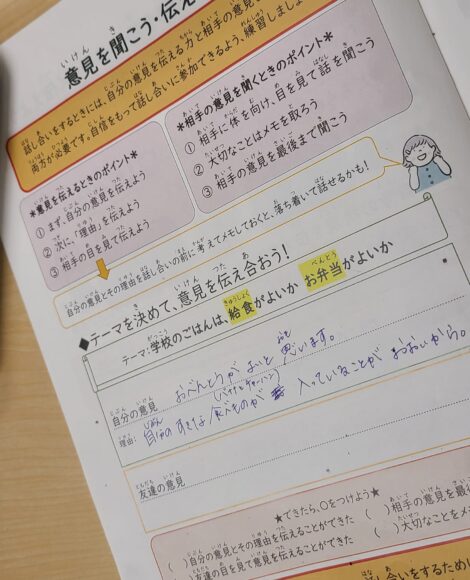 意見を聞こう・伝え
話し合いをするときには、自分の意見を伝える力と相手の意見
両方が必要です。自信をもって話し合いに参加できるよう、練習しましょ
*意見を伝えるときのポイント*
① まず、自分の意見を伝えよう
② 次に、「理由」を伝えよう
③ 相手の目を見て伝えよう
*相手の意見を聞くときのポイント*
① 相手に体を向け、目を見て話を聞こう
② 大切なことはメモを取ろう
③ 相手の意見を最後まで聞こう
自分の意見とその理由を話し合いの前に考えてメモしておくと、落ち着いて話せるかも!
◆テーマを決めて、意見を伝え合おう!
テーマ:学校のごはんは、給食がよいか お弁当がよいか
自分の意見 おべんとうがよいと思います。
理由: 自分のすきな食べものが入っていることがおおいから。
友達の意見
★できたら、○をつけよう★
( )自分の意見とその理由を伝えることができた ( )相手の意見を最後
( )友達の目を見て意見を伝えることができた ( )大切なことをメモ